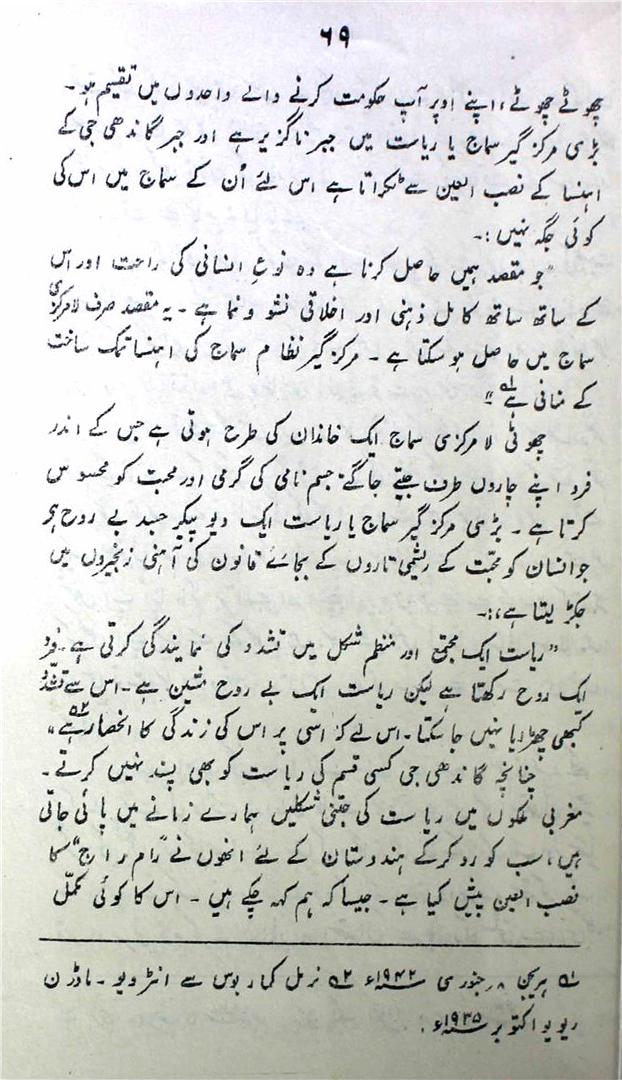 ۶۹
چھوٹے چھوٹے، اپنے اوپر آپ حکومت کرنے والے واحدوں میں تقسیم ہو۔
بڑی مرکز گیر سماج یا ریاست میں جبر ناگزیر ہے اور جبر گاندھی جی کے
اہنسا کے نصب العین سے ٹکراتا ہے اس لئے اُن کے سماج میں اس کی
کوئی جگہ نہیں :۔
"جو مقصد ہمیں حاصل کرنا ہے وہ نوعِ انسانی کی راحت اور اس
کے ساتھ ساتھ کامل ذہنی اور اخلاقی نشو و نما ہے۔ یہ مقصد صرف لامرکزی
سماج میں حاصل ہو سکتا ہے۔ مرکز گیر نظام سماج کی اہنساتمک ساخت
کے منافی ہے ۵۱"
چھوٹی لامرکزی سماج ایک خاندان کی طرح ہوتی ہے جس کے اندر
فرد اپنے چاروں طرف جیتے جاگتے جسم نامی کی گرمی اور محبت کو محسوس
کرتا ہے۔ بڑی مرکز گیر سماج یا ریاست ایک دیو پیکر جسد بے روح ہے
جو انسان کو محبّت کے ریشمی تاروں کے بجائے قانون کی آہنی زنجیروں میں
جکڑ لیتا ہے :۔
"ریاست ایک مجتمع اور منظم شکل میں تشدد کی نمایندگی کرتی ہے۔ فرد
ایک روح رکھتا ہے لیکن ریاست ایک بے روح مشین ہے۔ اس سے تشدّد
کبھی چھڑایا نہیں جا سکتا۔ اس لئے کہ اسی پر اس کی زندگی کا انحصار ہے ۵۲"
چنانچہ گاندھی جی کسی قسم کی ریاست کو بھی پسند نہیں کرتے۔
مغربی ملکوں میں ریاست کی جتنی شکلیں ہمارے زمانے میں پائی جاتی
ہیں، سب کو رد کرکے ہندوستان کے لئے انھوں نے "رام راج" کا
نصب العین پیش کیا ہے۔ جیسا کہ ہم کہہ چکے ہیں۔ اس کا کوئی مکمّل
۵۱ ہریجن ۸ر جنوری ۱۹۴۲ء ۵۲ نرمل کمار بوس سے انٹرویو۔ ماڈرن
ریویو اکتوبر ۱۹۳۵ء۔